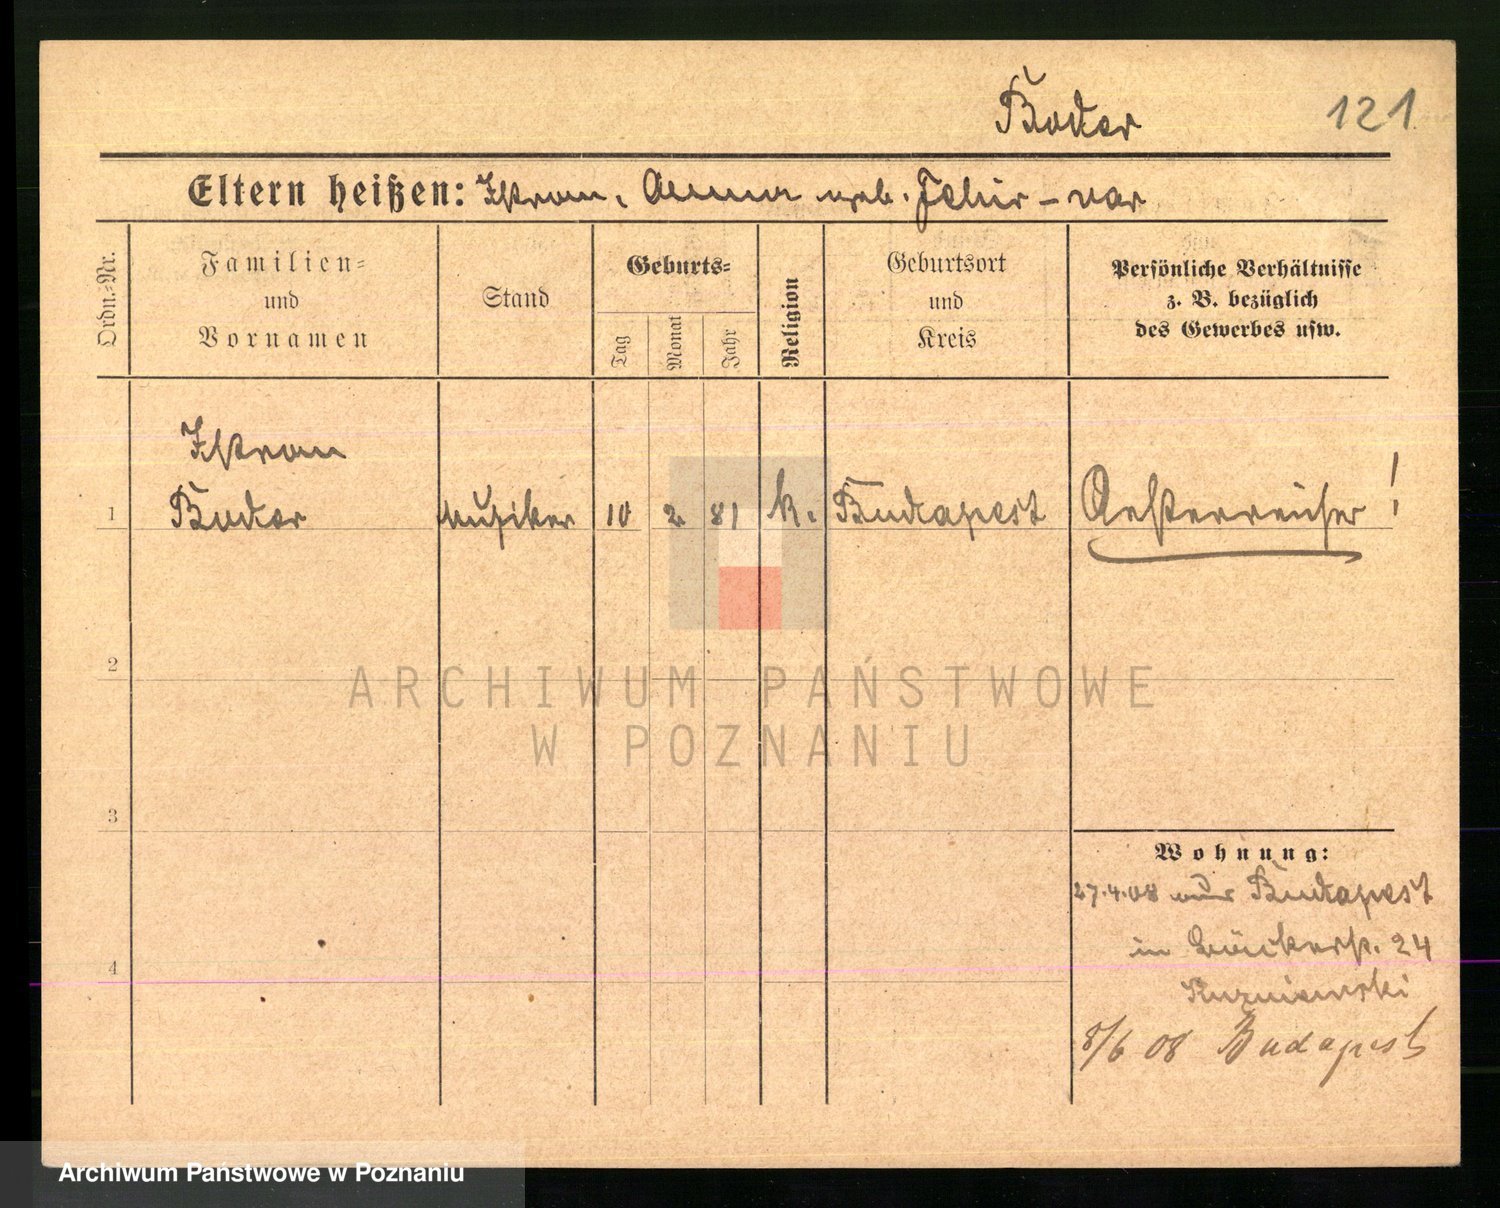 Bodor 121
Eltern heißen: Istvan, Anna geb. Fehir-var
Ordn.=Nr.
Familien=
und
Vornamen
Stand
Geburts=
Tag
Monat
Jahr
Religion
Geburtsort
und
Kreis
Persönliche Verhältnisse
z. B. bezüglich
des Gewerbes usw.
Istvan
1 Bodor Musiker 10 2. 81 k. Budapest Oesterreicher!
2
3
4
Wohnung:
27.4.08 aus Budapest
in Bäckerstr. 24
8/6 08 Budapest
ARCHIWUM PAŃSTWOWE
W POZNANIU
Archiwum Państwowe w Poznaniu